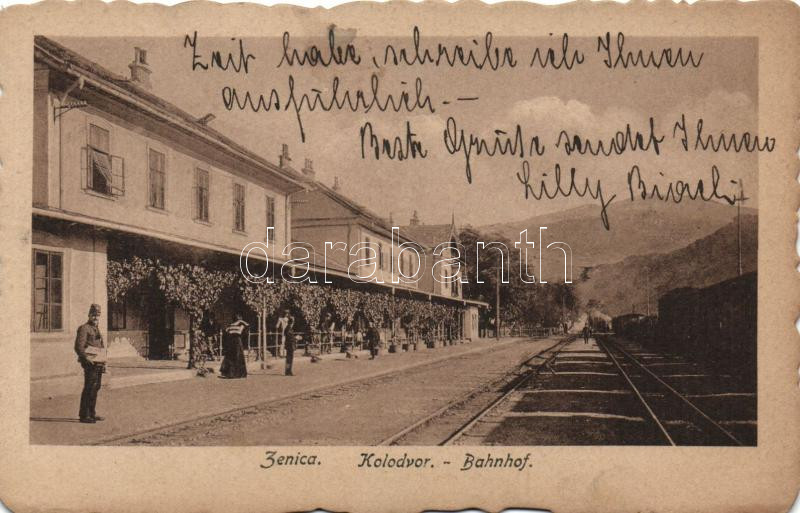 Zeit habe, schreibe ich Ihnen
ausführlich. –
Beste Grüße sendet Ihnen
Lilly
darabanth.com
Zenica. Kolodvor. - Bahnhof.